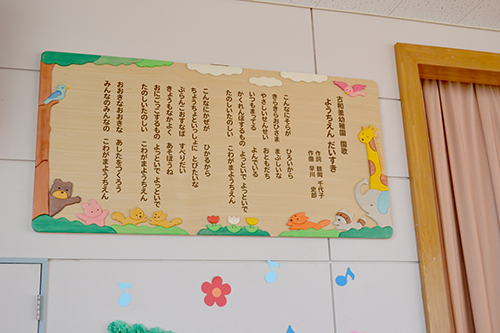 古和釜幼稚園 園歌
ようちえん だいすき
作詞 鶴岡 千代子
作曲 早川 史郎
こんなにそらが ひろいから
きらきらおひさま まぶしいな
やさしいせんせい おともだち
いつもまってる よんでいる
かくれんぼするもの よっといで よっといで
たのしいたのしい こわがまようちえん
こんなにかぜが ひかるから
ちょうちょといっしょに とびたいな
ぶらんこおすなば すべりだい
きょうもなかよく あそぼうね
おにごっこするもの よっといで よっといで
たのしいたのしい こわがまようちえん
おおきなおおきな あしたをつくろう
みんなのみんなの こわがまようちえん